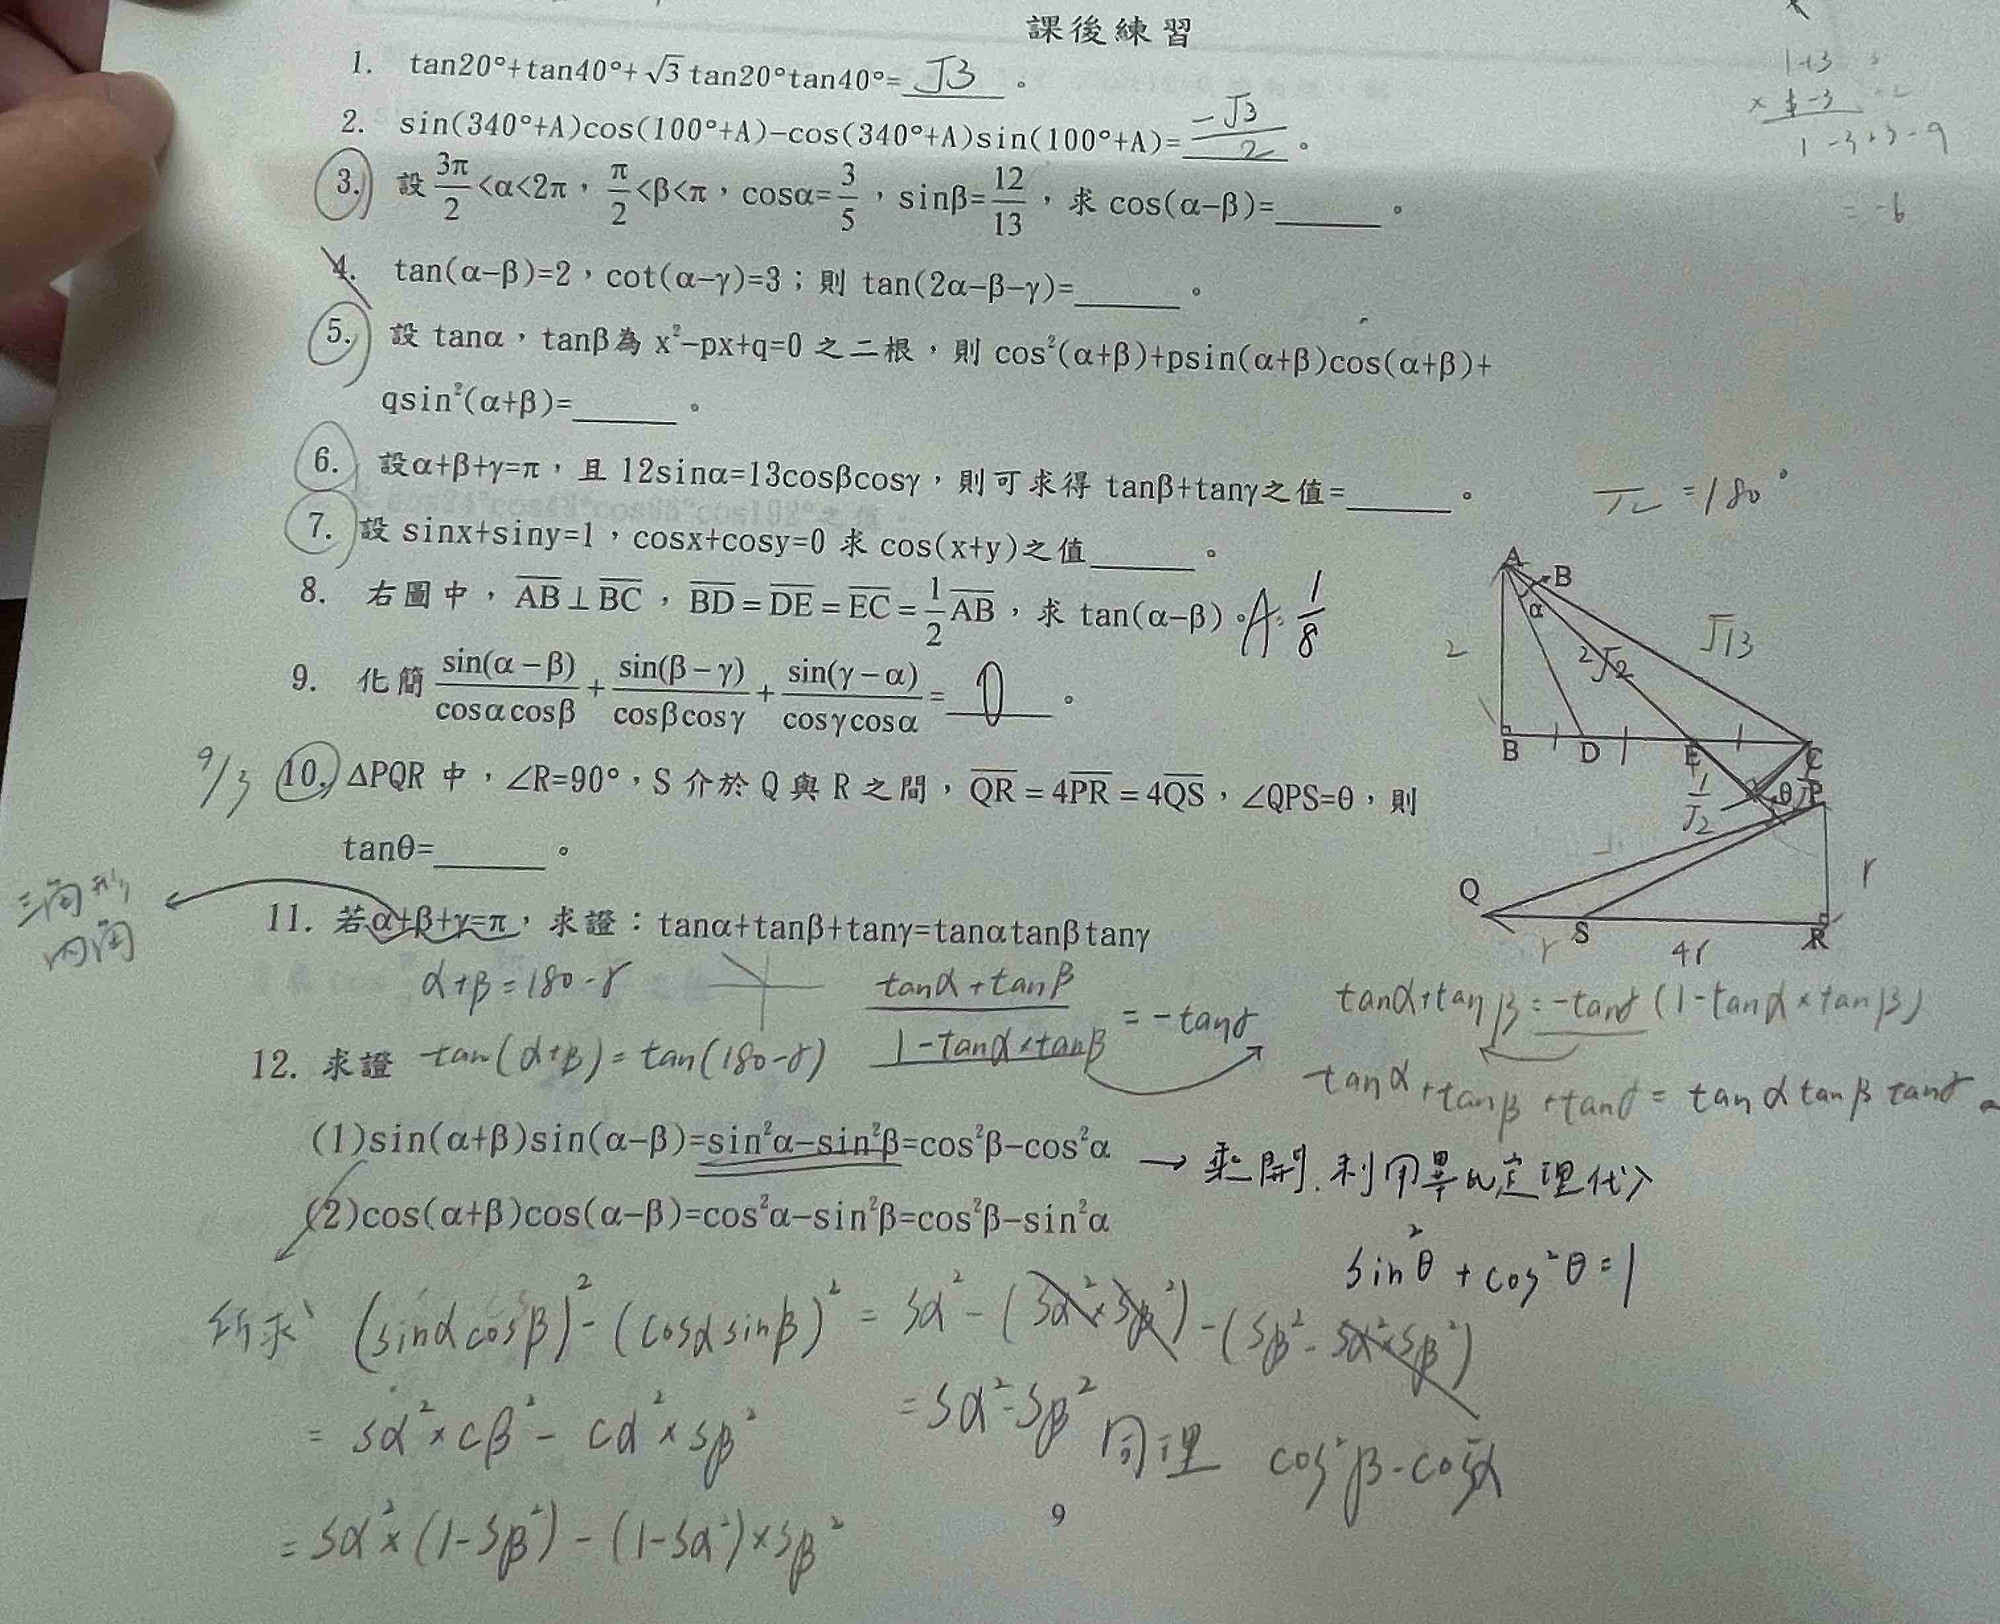 課後練習
1. tan20°+tan40°+√3tan20°tan40°= √3 。
2. sin(340°+A)cos(100°+A)−cos(340°+A)sin(100°+A)= −√3/2 。
3. 設 3π/2<α<2π，π/2<β<π，cosα=3/5，sinβ=12/13，求 cos(α−β)=______。
4. tan(α−β)=2，cot(α−γ)=3；則 tan(2α−β−γ)=______。
5. 設 tanα，tanβ為 x²−px+q=0 之二根，則 cos²(α+β)+psin(α+β)cos(α+β)+
qsin²(α+β)=______。
6. 設α+β+γ=π，且 12sinα=13cosβcosγ，則可求得 tanβ+tanγ之值=______。
7. 設 sinx+siny=1，cosx+cosy=0 求 cos(x+y)之值______。
8. 右圖中，AB⊥BC，BD=DE=EC=1/2AB，求 tan(α−β)。A: 1/8
9. 化簡 sin(α−β)/cosαcosβ + sin(β−γ)/cosβcosγ + sin(γ−α)/cosγcosα = 0 。
9/3
10. ΔPQR 中，∠R=90°，S 介於 Q 與 R 之間，QR=4PR=4QS，∠QPS=θ，則
tanθ=______。
三角形
內角
11. 若α+β+γ=π，求證：tanα+tanβ+tanγ=tanαtanβtanγ
α+β=180-γ
tanα+tanβ/1-tanα×tanβ = -tanγ
tanα+tanβ=-tanγ(1-tanα×tanβ)
tanα+tanβ+tanγ=tanαtanβtanγ
12. 求證
tan(α+β)=tan(180-γ)
(1)sin(α+β)sin(α−β)=sin²α−sin²β=cos²β−cos²α
→ 乘開.利用畢氏定理代入
(2)cos(α+β)cos(α−β)=cos²α−sin²β=cos²β−sin²α
sin²θ+cos²θ=1
所求 (sinαcosβ)²-(cosαsinβ)² = sα²-(sα²×sβ²)-(sβ²-sα²×sβ²)
= sα²×cβ²-cα²×sβ²
= sα²-sβ² 同理 cos²β-cos²α
= sα²×(1-sβ²)-(1-sα²)×sβ²
9
1+3
× 1-3
1-3+3-9
= -6
π=180°
A
B
α
2
2√2
√13
B
D
E
C
1/√2
θ
P
Q
r
S
4r
R
r